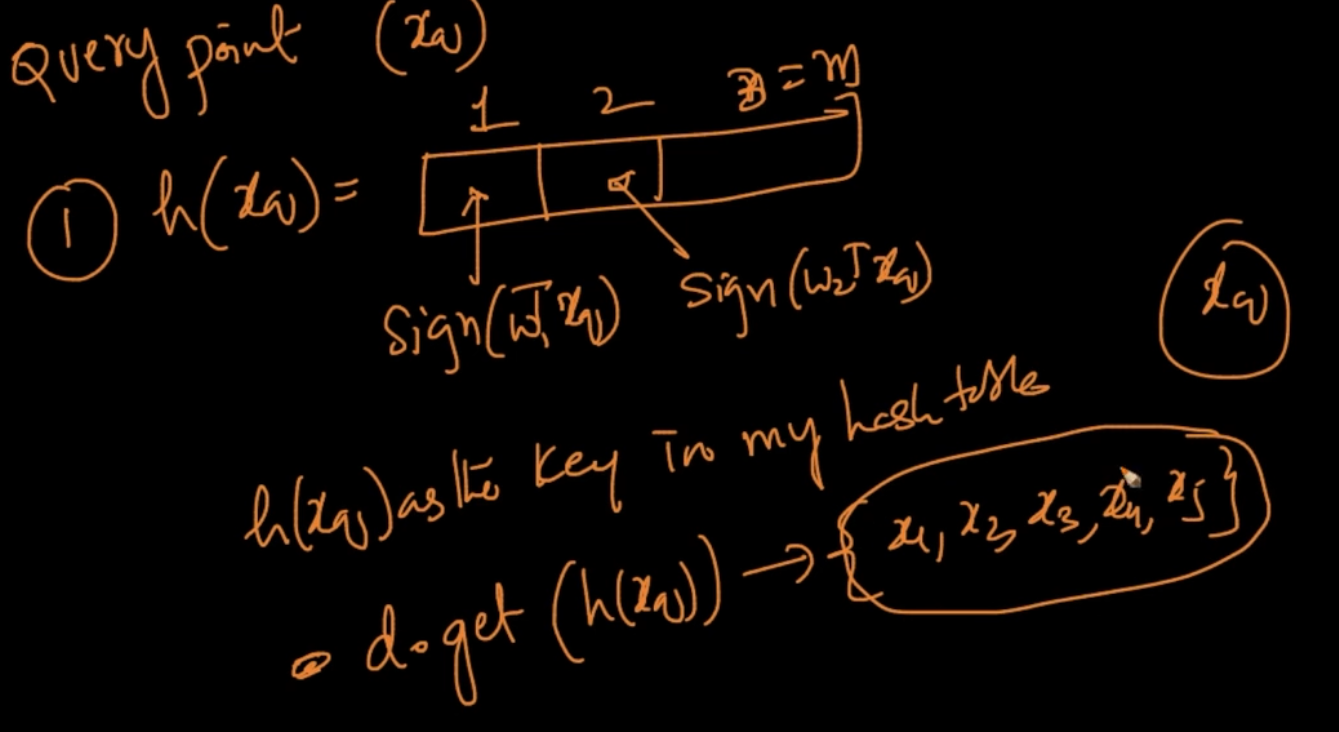 Query point (xq)
1 2 = m
① h(xq) =
Sign(w₁ᵀxq) Sign(w₂ᵀxq)
xq
h(xq) as the key in my hash table
• do get (h(xq)) → {x1, x2, x3, x4, x5}